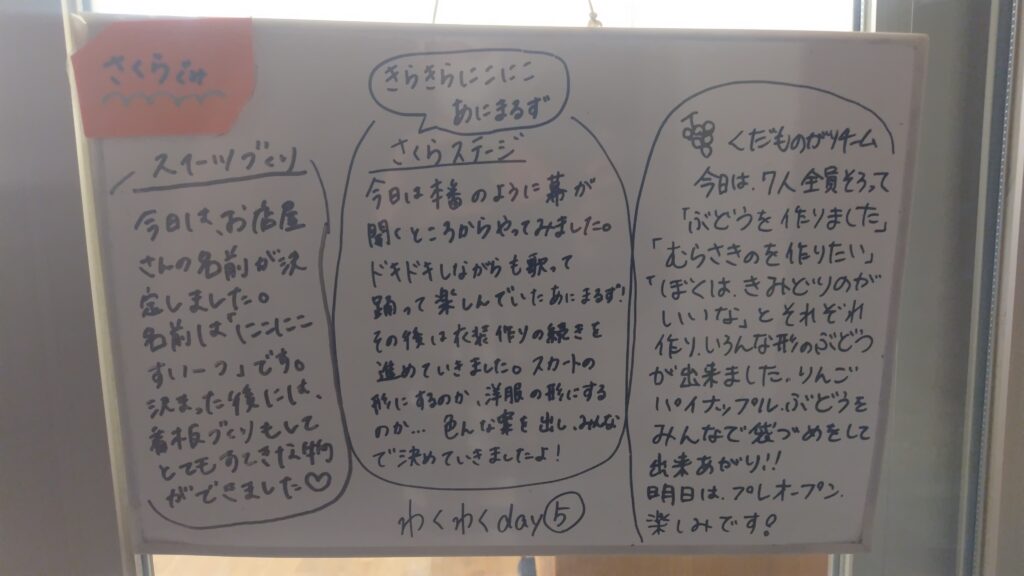 さくらぐみ
スイーツづくり
今日は、お店屋
さんの名前が決
定しました。
名前は「にこにこ
すいーつ」です。
決まった後には、
看板づくりもして
とてもすてきな物
ができました♡
きらきらにこにこ
あにまるず
さくらステージ
今日は本番のように幕が
開くところからやってみました。
ドキドキしながらも歌って
踊って楽しんでいたあにまるず!
その後は衣装作りの続きを
進めていきました。スカートの
形にするのか、洋服の形にする
のか… 色んな案を出し、みんな
で決めていきましたよ!
くだものがりチーム
今日は、7人全員そろって
「ぶどうを作りました」
「むらさきのを作りたい」
「ぼくは、きみどりのが
いいな」とそれぞれ
作り、いろんな形のぶどう
が出来ました。りんご
パイナップル、ぶどうを
みんなで袋づめをして
出来あがり!!
明日は、プレオープン、
楽しみです!
わくわくday⑤